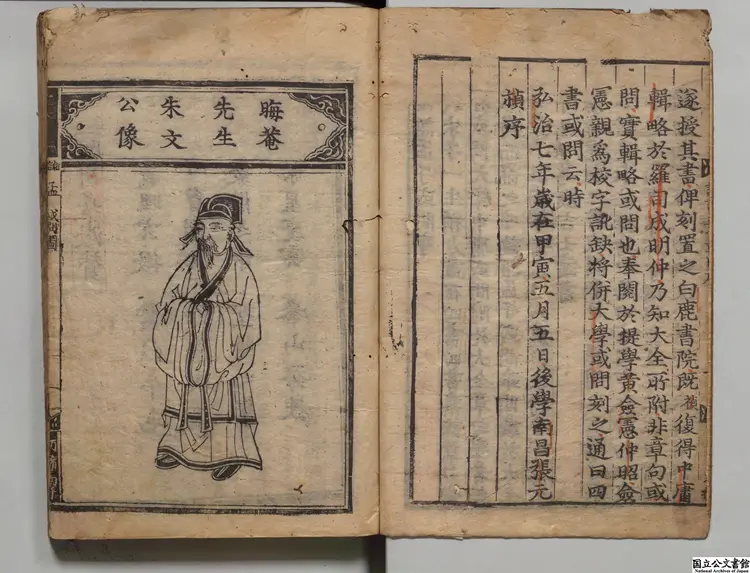 遂授其書俾刻置之白鹿書院既禎復得中庸
輯略於羅司成明仲乃知大全所附非章句或
問實輯略或問也奉閱於提學黃僉憲仲昭僉
憲親為校字訛缺将併大學或問刻之通曰四
書或問云時
弘治七年歲在甲寅五月五日後學南昌張元
禎序
晦菴
先生
朱文
公像
国立公文書館
National Archives of Japan